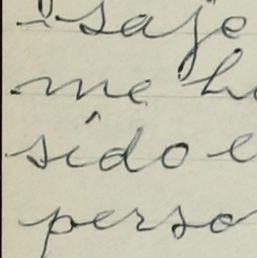 saje
me h
sido e
perso